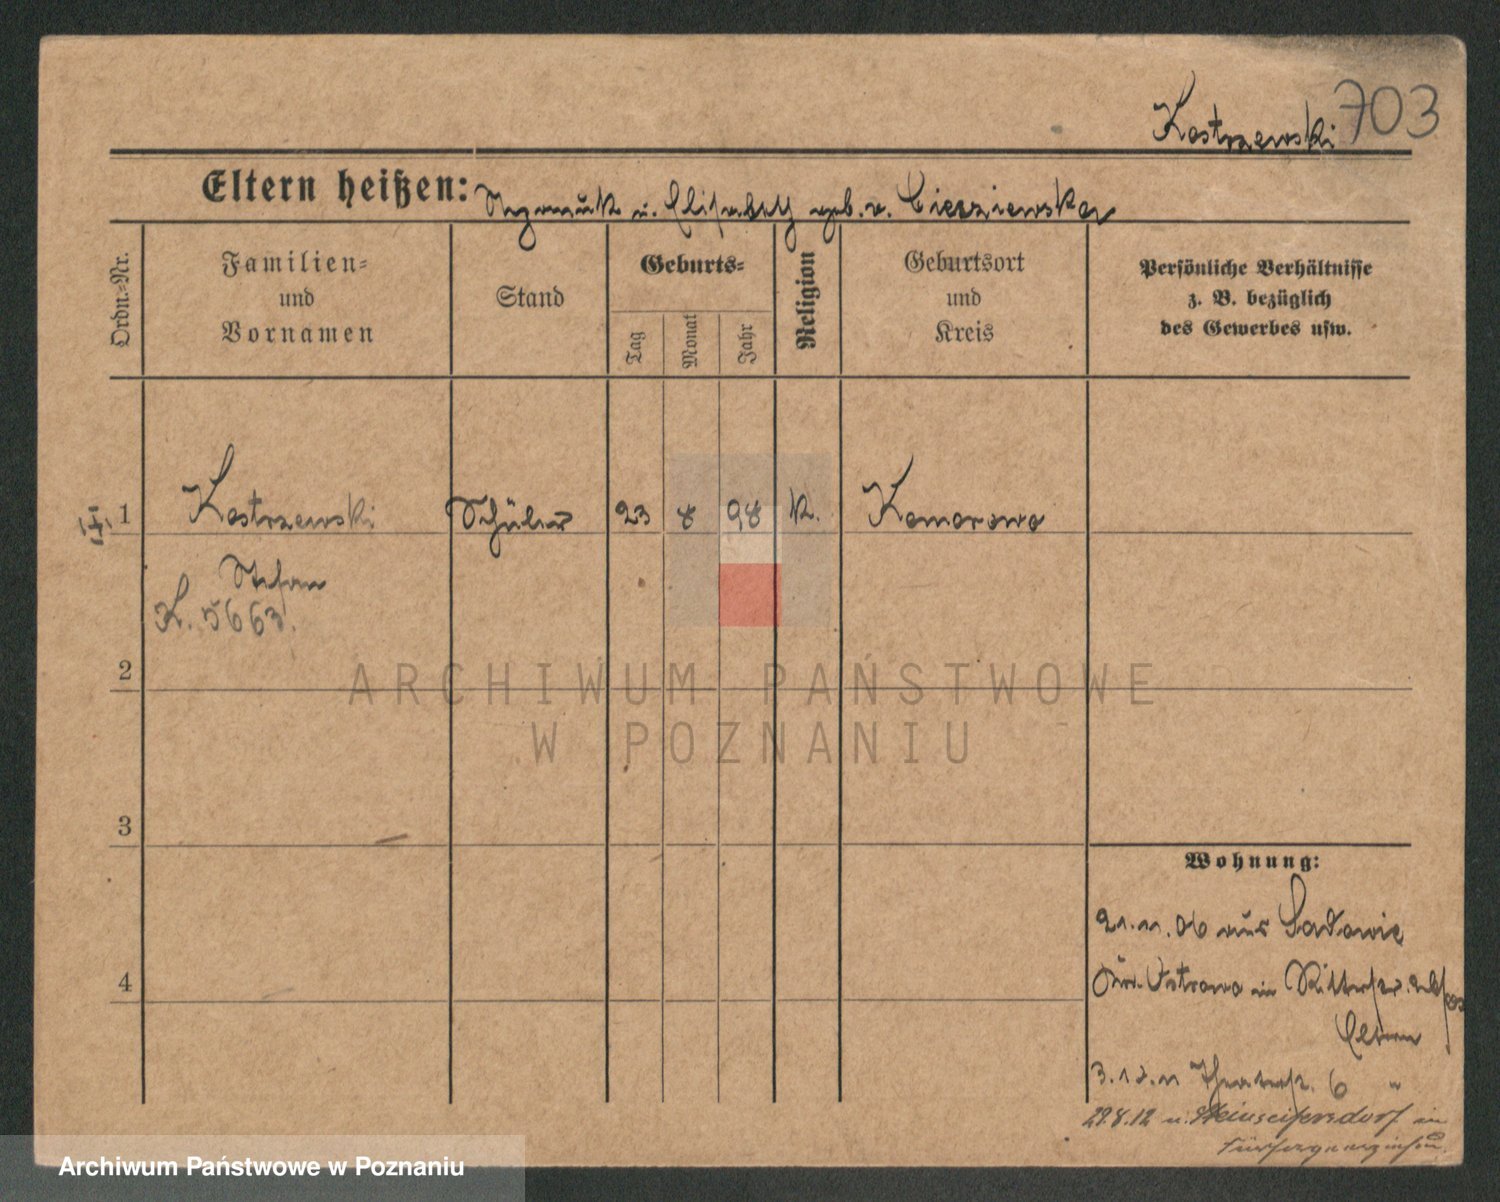 Kostrzewski 703
Eltern heißen: u. Elisabeth geb. v. Cieszniewska
Ordn.-Nr.
Familien-
und
Vornamen
Stand
Geburts-
Tag
Monat
Jahr
Religion
Geburtsort
und
Kreis
Persönliche Verhältnisse
z. B. bezüglich
des Gewerbes usw.
1 Kostrzewski Schüler 23 8 98 k. Komorowo
Stefan
K. 5663.
2
ARCHIWUM PAŃSTWOWE
W POZNANIU
3
Wohnung:
21.11.06 aus Sadowie
Ostrowo in
4
Eltern
3.12.11 Theaterstr. 6 "
29.8.12 n. Steinseifersdorf in
Archiwum Państwowe w Poznaniu